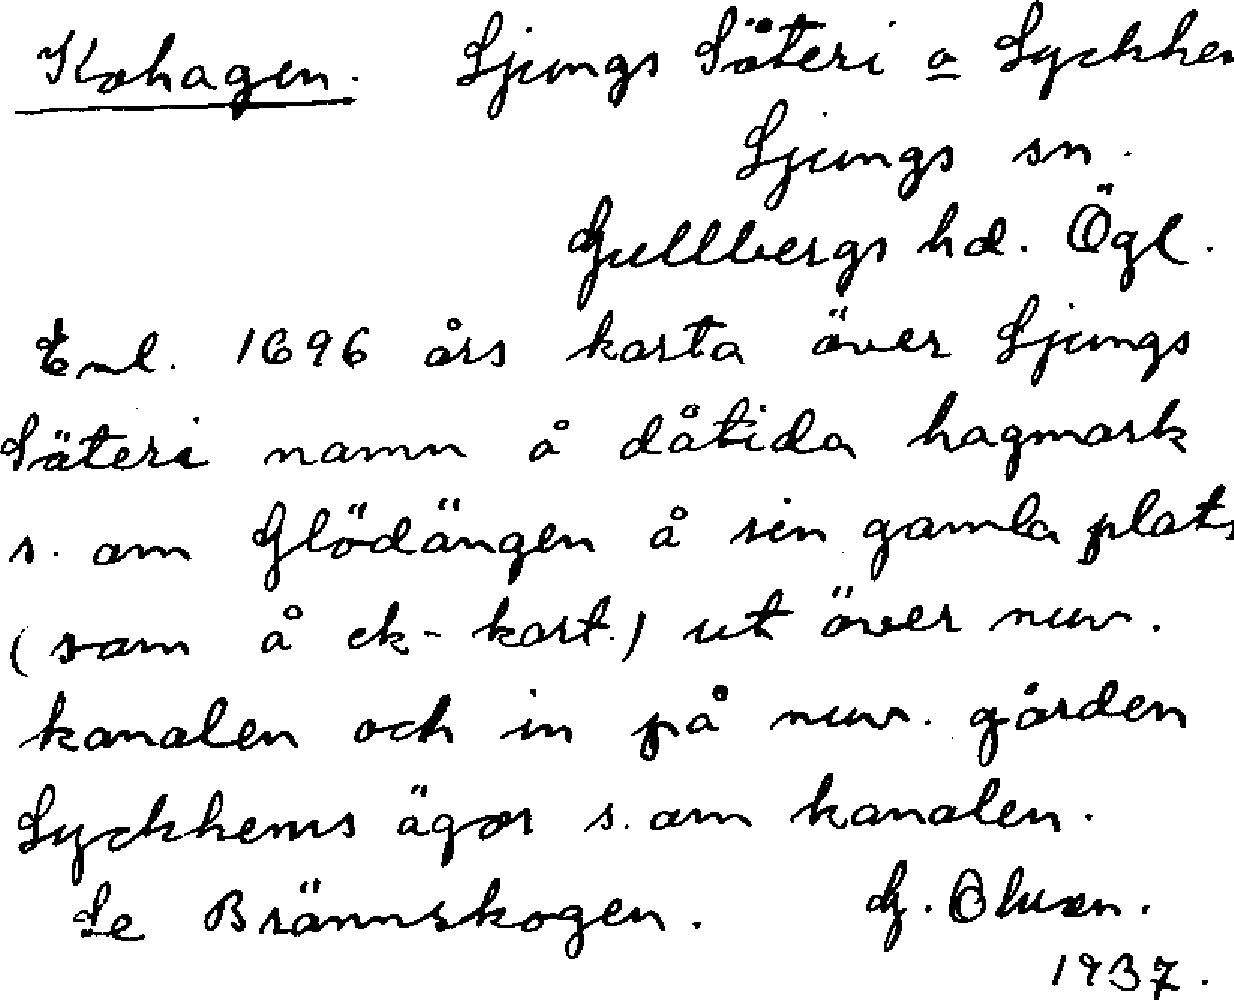 Kohagen. Ljungs Säteri o Lyckhem
Ljungs sn.
Gullbergs hd. Ögl.
Enl. 1696 års karta över Ljungs
Säteri namn å dåtida hagmark
s. om Glödängen å sin gamla plats
(som å ek-kart.) ut över nuv.
kanalen och in på nuv. gården
Lyckhems ägor s. om kanalen.
Se Brännskogen. G. Olsson.
1937.